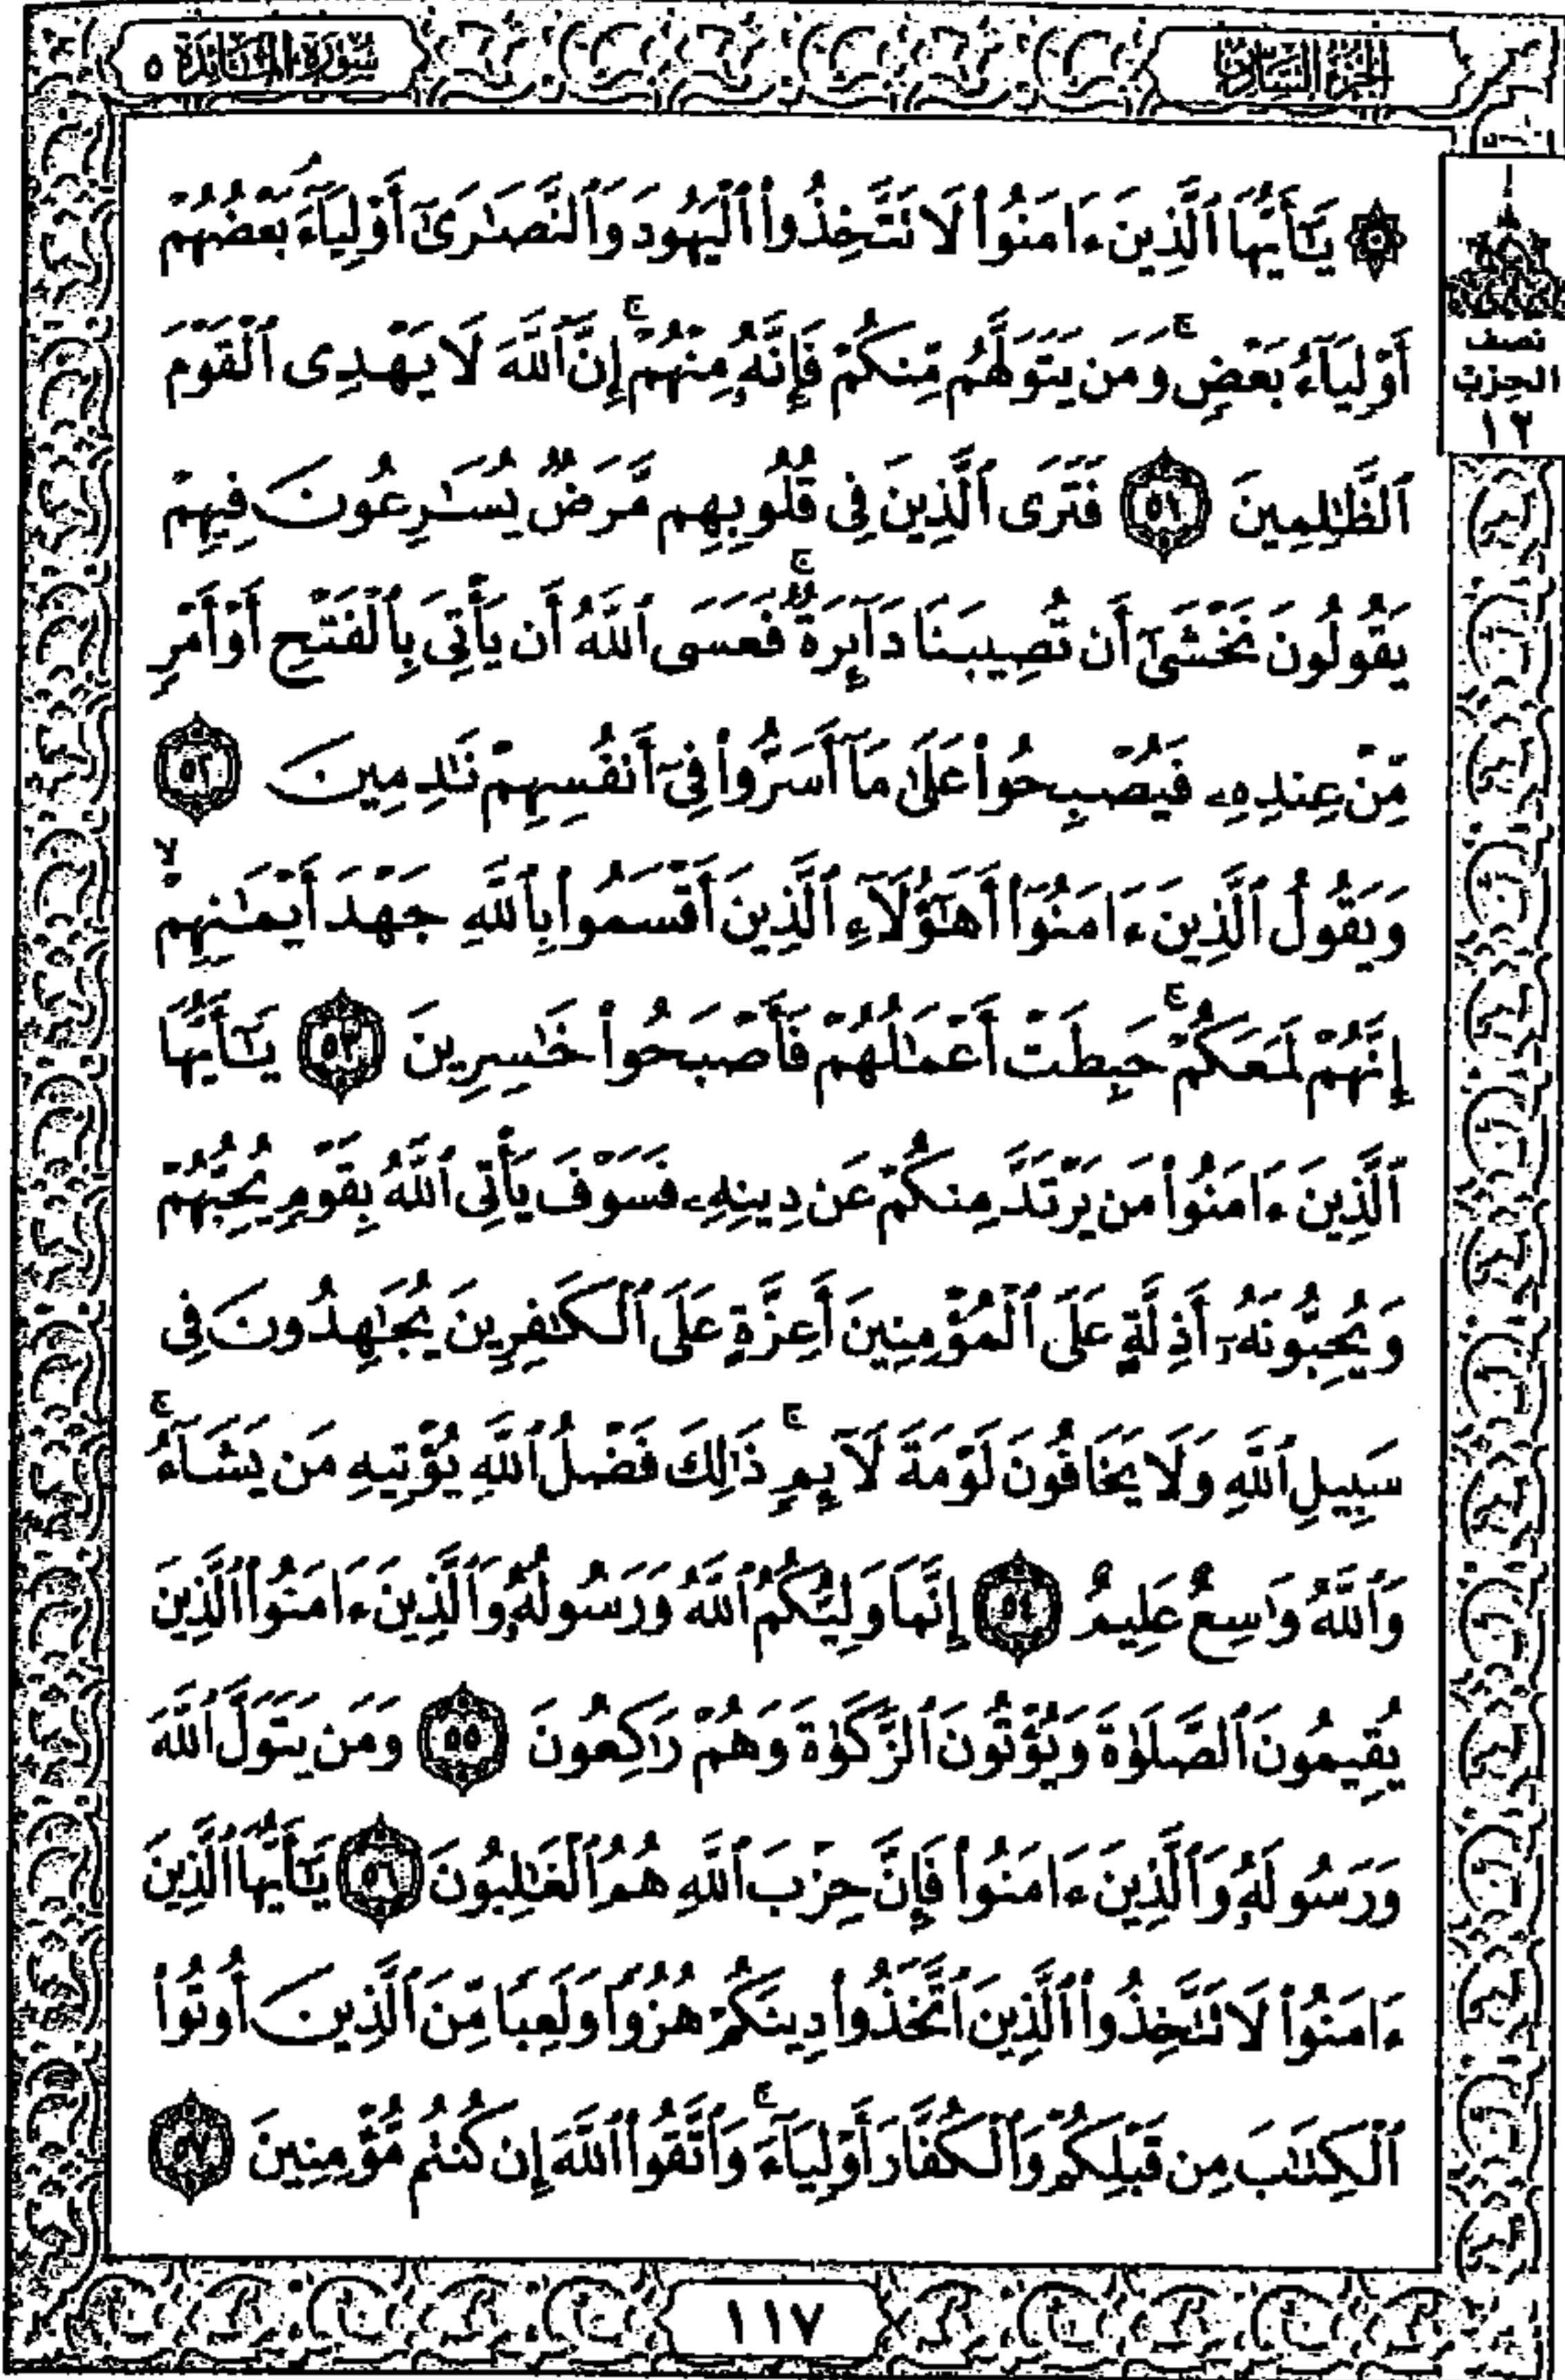 الجزء السادس
سورة المائدة ٥
۞ يَٰٓأَيُّهَا ٱلَّذِينَ ءَامَنُوا۟ لَا تَتَّخِذُوا۟ ٱلْيَهُودَ وَٱلنَّصَٰرَىٰٓ أَوْلِيَآءَ بَعْضُهُمْ
أَوْلِيَآءُ بَعْضٍۚ وَمَن يَتَوَلَّهُم مِّنكُمْ فَإِنَّهُۥ مِنْهُمْۚ إِنَّ ٱللَّهَ لَا يَهْدِى ٱلْقَوْمَ
نصف
الحزب
١٢
ٱلظَّٰلِمِينَ ٥١ فَتَرَى ٱلَّذِينَ فِى قُلُوبِهِم مَّرَضٌ يُسَٰرِعُونَ فِيهِمْ
يَقُولُونَ نَخْشَىٰٓ أَن تُصِيبَنَا دَآئِرَةٌۚ فَعَسَى ٱللَّهُ أَن يَأْتِىَ بِٱلْفَتْحِ أَوْ أَمْرٍ
مِّنْ عِندِهِۦ فَيُصْبِحُوا۟ عَلَىٰ مَآ أَسَرُّوا۟ فِىٓ أَنفُسِهِمْ نَٰدِمِينَ ٥٢
وَيَقُولُ ٱلَّذِينَ ءَامَنُوٓا۟ أَهَٰٓؤُلَآءِ ٱلَّذِينَ أَقْسَمُوا۟ بِٱللَّهِ جَهْدَ أَيْمَٰنِهِمْۙ
إِنَّهُمْ لَمَعَكُمْۚ حَبِطَتْ أَعْمَٰلُهُمْ فَأَصْبَحُوا۟ خَٰسِرِينَ ٥٣ يَٰٓأَيُّهَا
ٱلَّذِينَ ءَامَنُوا۟ مَن يَرْتَدَّ مِنكُمْ عَن دِينِهِۦ فَسَوْفَ يَأْتِى ٱللَّهُ بِقَوْمٍ يُحِبُّهُمْ
وَيُحِبُّونَهُۥٓ أَذِلَّةٍ عَلَى ٱلْمُؤْمِنِينَ أَعِزَّةٍ عَلَى ٱلْكَٰفِرِينَ يُجَٰهِدُونَ فِى
سَبِيلِ ٱللَّهِ وَلَا يَخَافُونَ لَوْمَةَ لَآئِمٍۚ ذَٰلِكَ فَضْلُ ٱللَّهِ يُؤْتِيهِ مَن يَشَآءُۚ
وَٱللَّهُ وَٰسِعٌ عَلِيمٌ ٥٤ إِنَّمَا وَلِيُّكُمُ ٱللَّهُ وَرَسُولُهُۥ وَٱلَّذِينَ ءَامَنُوا۟ ٱلَّذِينَ
يُقِيمُونَ ٱلصَّلَوٰةَ وَيُؤْتُونَ ٱلزَّكَوٰةَ وَهُمْ رَٰكِعُونَ ٥٥ وَمَن يَتَوَلَّ ٱللَّهَ
وَرَسُولَهُۥ وَٱلَّذِينَ ءَامَنُوا۟ فَإِنَّ حِزْبَ ٱللَّهِ هُمُ ٱلْغَٰلِبُونَ ٥٦ يَٰٓأَيُّهَا ٱلَّذِينَ
ءَامَنُوا۟ لَا تَتَّخِذُوا۟ ٱلَّذِينَ ٱتَّخَذُوا۟ دِينَكُمْ هُزُوًا وَلَعِبًا مِّنَ ٱلَّذِينَ أُوتُوا۟
ٱلْكِتَٰبَ مِن قَبْلِكُمْ وَٱلْكُفَّارَ أَوْلِيَآءَۚ وَٱتَّقُوا۟ ٱللَّهَ إِن كُنتُم مُّؤْمِنِينَ ٥٧
١١٧